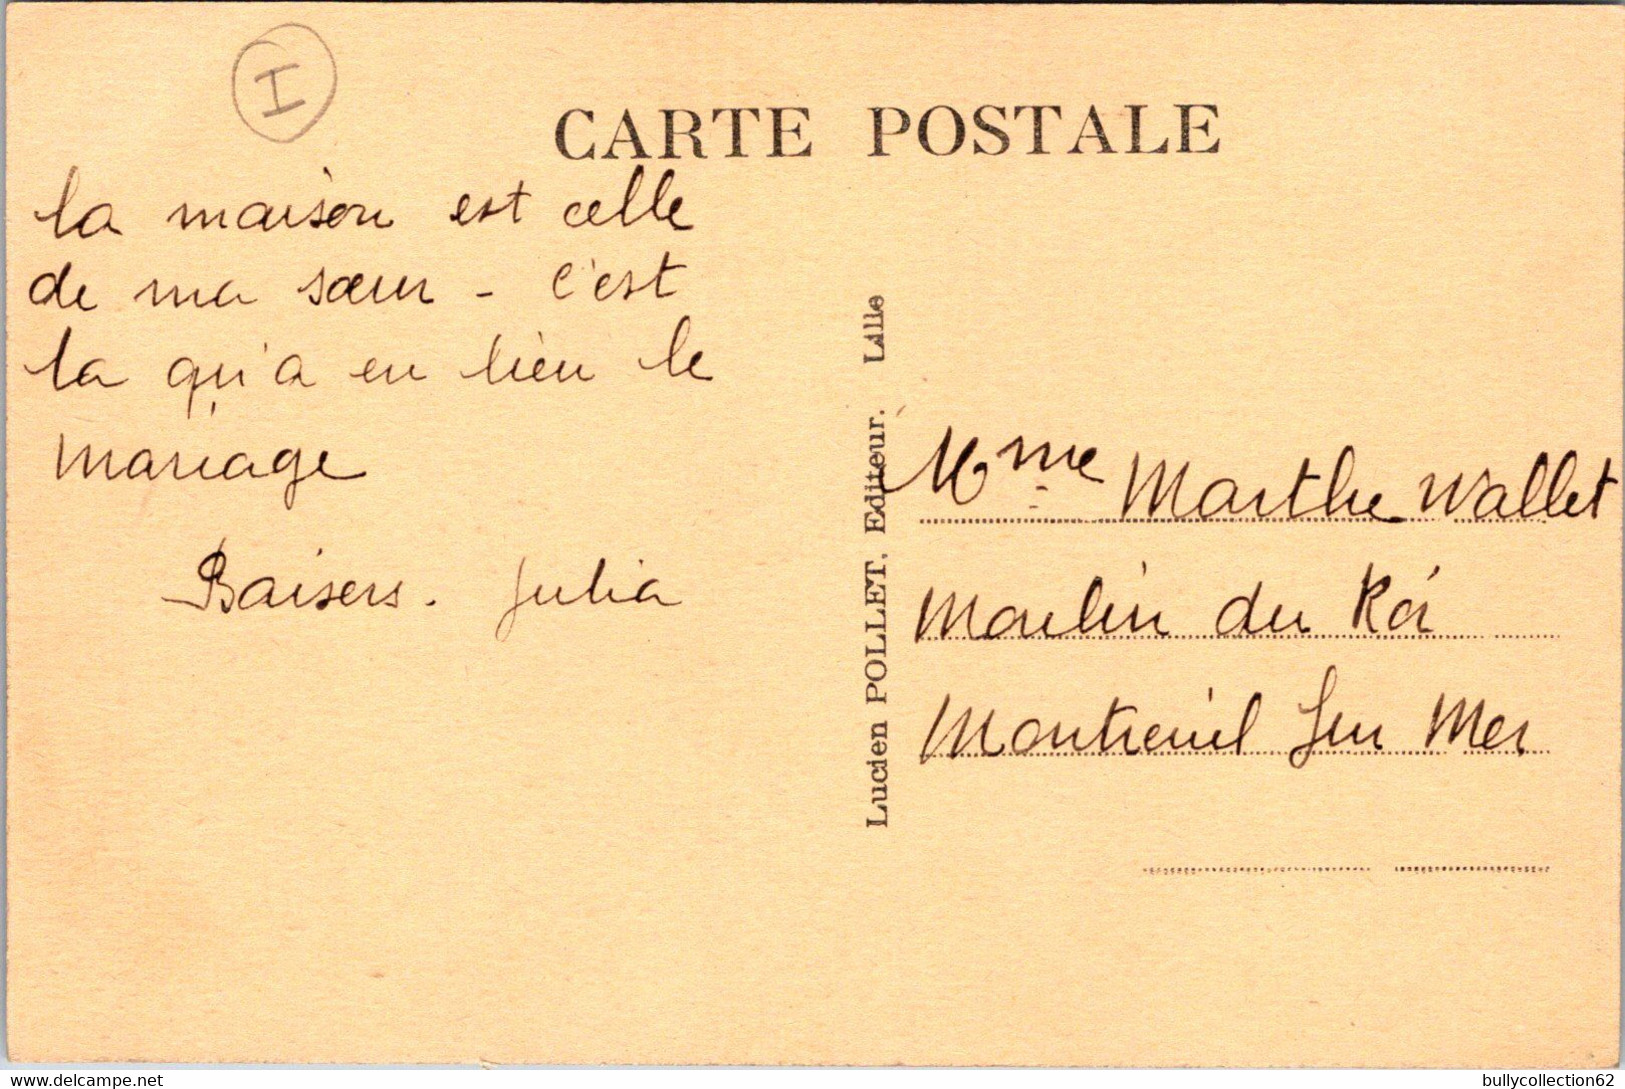 I
CARTE POSTALE
la maison est celle
de ma sœur - c'est
la qu'a eu lieu le
mariage
Baisers. Julia
Lucien POLLET, Editeur. Lille
Mme Marthe Wallet
Moulin du Roi
Montreuil sur Mer
delcampe.net
bullycollection62